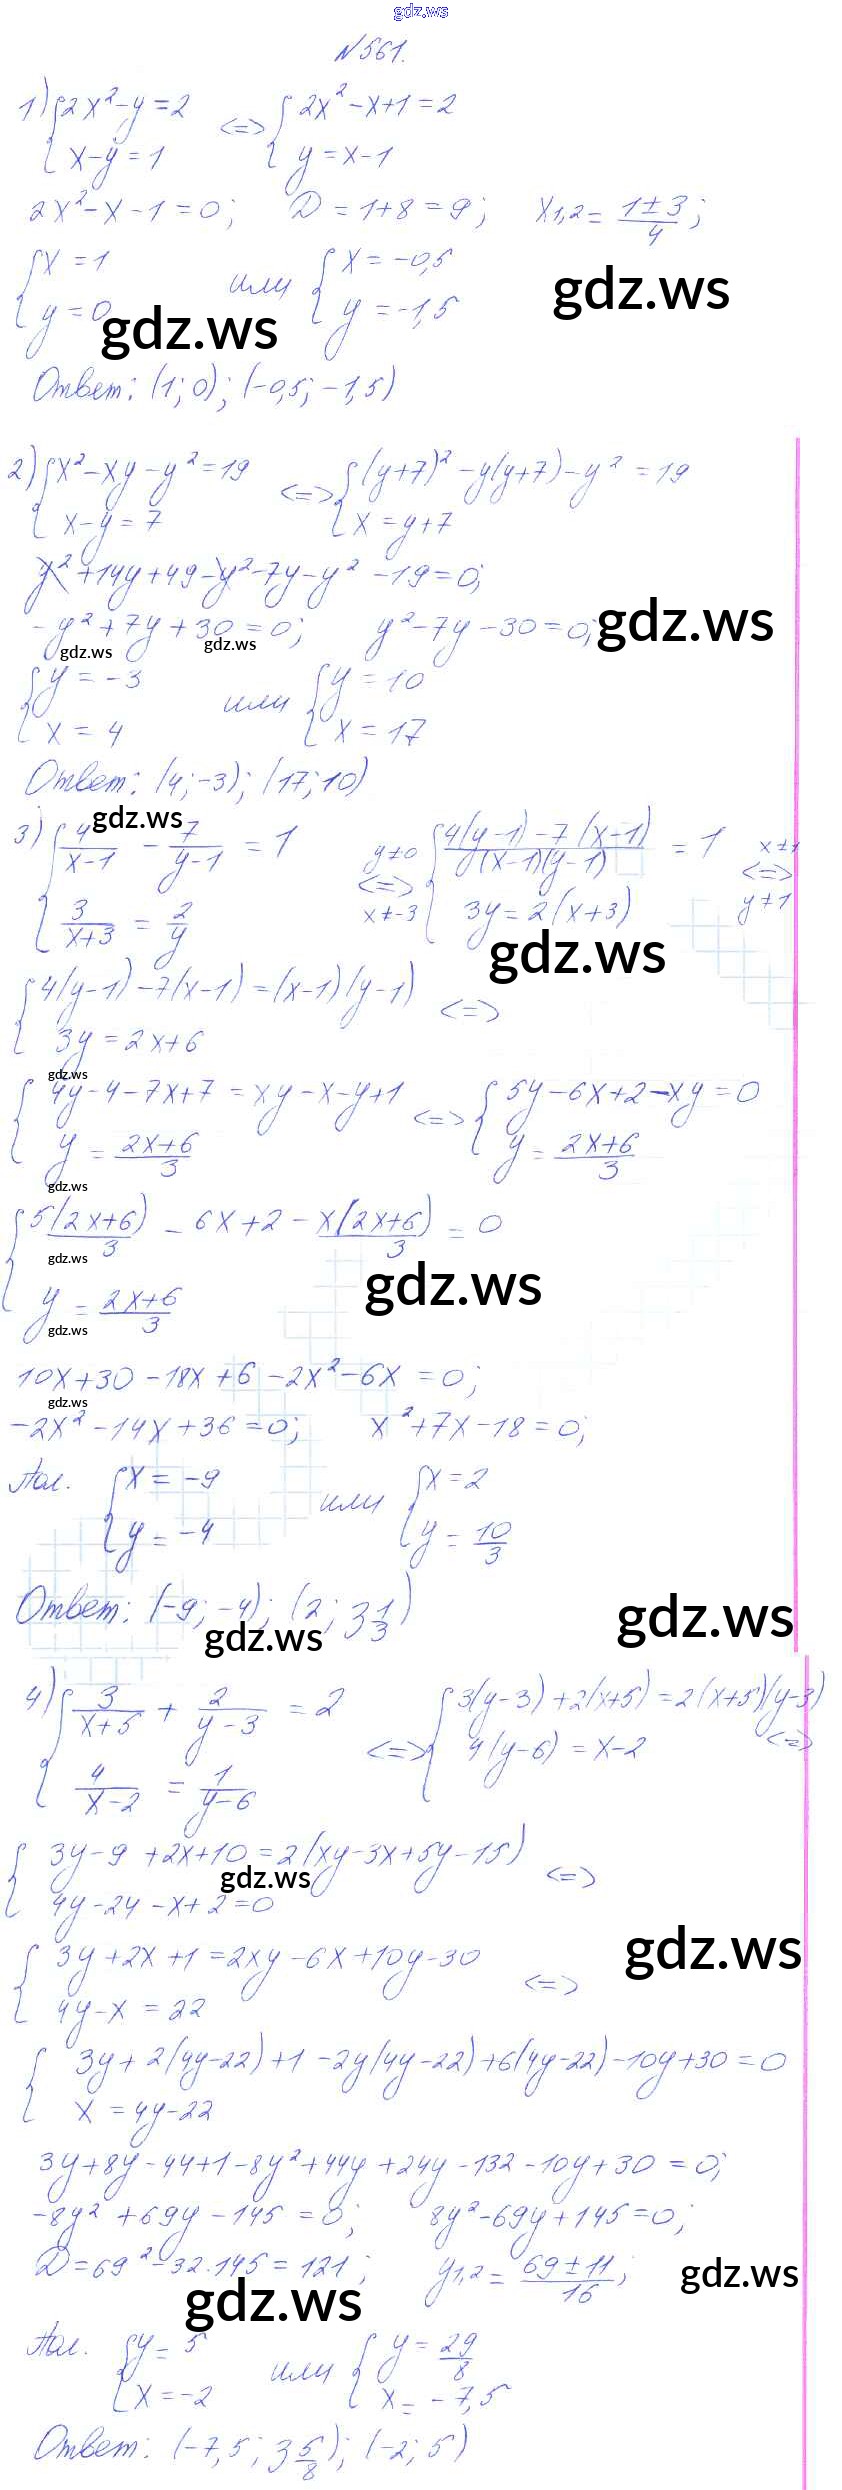 gdz.ws
№561.
1) {2x²-y=2 <=> {2x²-x+1=2
{x-y=1 {y=x-1
2x²-x-1=0; D=1+8=9; x1,2= (1±3)/4;
{x=1 или {x=-0,5
{y=0 {y=-1,5
gdz.ws gdz.ws
Ответ: (1; 0); (-0,5; -1,5)
2) {x²-xy-y²=19 <=> {(y+7)²-y(y+7)-y²=19
{x-y=7 {x=y+7
y²+14y+49-y²-7y-y²-19=0;
-y²+7y+30=0; y²-7y-30=0; gdz.ws
gdz.ws gdz.ws
{y=-3 или {y=10
{x=4 {x=17
Ответ: (4; -3); (17; 10)
gdz.ws
3) {4/(x-1) - 7/(y-1) = 1 y≠0 <=> x≠-3 {(4(y-1)-7(x-1))/((x-1)(y-1)) = 1 x≠1 <=> y≠1
{3/(x+3) = 2/y {3y=2(x+3)
gdz.ws
{4(y-1)-7(x-1)=(x-1)(y-1) <=>
{3y=2x+6
gdz.ws
{4y-4-7x+7=xy-x-y+1 <=> {5y-6x+2-xy=0
{y=(2x+6)/3 {y=(2x+6)/3
gdz.ws
{5(2x+6)/3 - 6x+2 - x(2x+6)/3 = 0
gdz.ws gdz.ws
{y=(2x+6)/3
gdz.ws
10x+30-18x+6-2x²-6x=0;
gdz.ws
-2x²-14x+36=0; x²+7x-18=0;
Пол. {x=-9 или {x=2
{y=-4 {y=10/3
Ответ: (-9; -4); (2; 3 1/3)
gdz.ws gdz.ws
4) {3/(x+5) + 2/(y-3) = 2 <=> {3(y-3)+2(x+5)=2(x+5)(y-3) <=>
{4/(x-2) = 1/(y-6) {4(y-6)=x-2
{3y-9+2x+10=2(xy-3x+5y-15) <=>
{4y-24-x+2=0
gdz.ws
{3y+2x+1=2xy-6x+10y-30 <=>
{4y-x=22
gdz.ws
{3y+2(4y-22)+1-2y(4y-22)+6(4y-22)-10y+30=0
{x=4y-22
3y+8y-44+1-8y²+44y+24y-132-10y+30=0;
-8y²+69y-145=0; 8y²-69y+145=0;
D=69²-32·145=121; y1,2= (69±11)/16;
gdz.ws gdz.ws
Пол. {y=5 или {y=29/8
{x=-2 {x=-7,5
Ответ: (-7,5; 3 5/8); (-2; 5)